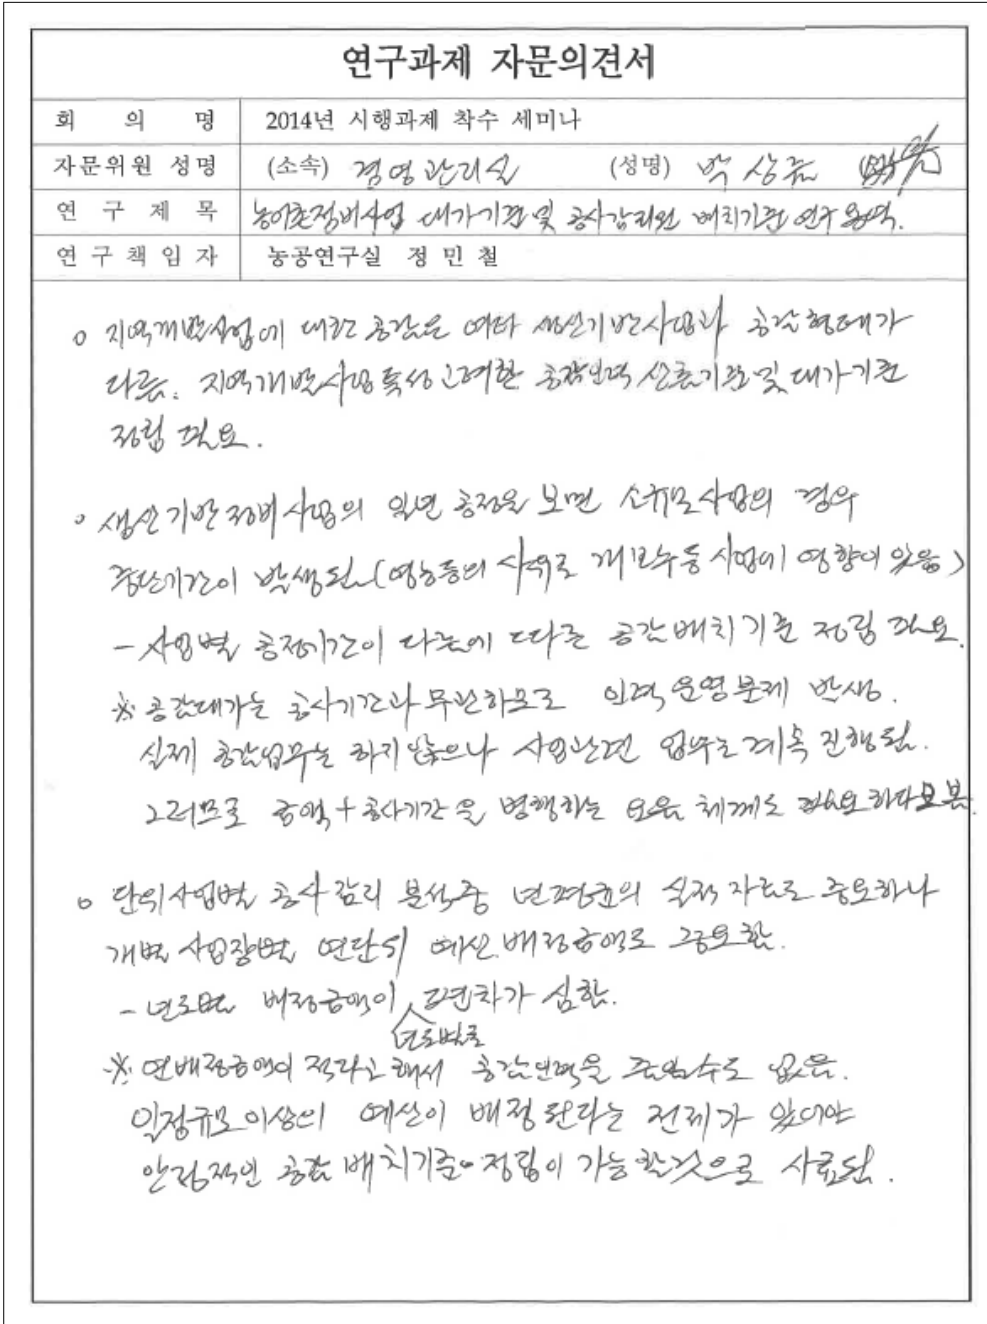 연구과제 자문의견서
회 의 명 2014년 시행과제 착수 세미나
자문위원 성명 (소속) 경영관리실 (성명) 박상
연 구 제 목 농어촌정비사업 대가기준 및 공사감리원 배치기준 연구용역.
연 구 책 임 자 농공연구실 정 민 철
o 지역개발사업에 대한 공감은 여타 생산기반사업과 공감형태가
다름. 지역개발사업특성 고려한 공감인력 산출기준 및 대가기준
정립 필요.
o 생산기반정비사업의 일년 공정을 보면 소규모사업의 경우
중단기간이 발생된 (영농등의 사유로 개보수등 시험에 영향이 있음)
- 사업별 공정기간이 다름에 따른 공감배치기준 정립 필요.
※ 공감대가는 공사기간과 무관하므로 인력운영문제 발생.
실제 공감업무는 하지않으나 사업관련 업무는 계속 진행됨.
그러므로 금액+공사기간을 병행하는 요율 체계도 필요하다고 봄.
o 단위사업별 공사감리 분석중 년평균의 실적 자료도 중요하나
개별 사업장별 연단위 예산배정금액도 중요함.
- 년도별 배정금액이 년도별로 편차가 심함.
※ 연배정금액이 적다고 해서 공감인력을 줄일수도 없음.
일정규모이상의 예산이 배정된다는 전제가 있어야
안정적인 공감 배치기준 정립이 가능할것으로 사료됨.